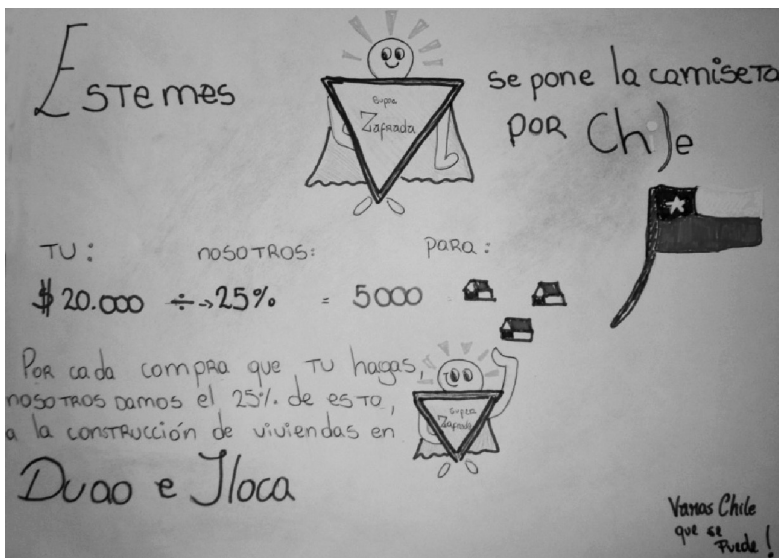 Este mes
Super
Zafrada
se pone la camiseta
por Chile
TU: NOSOTROS: PARA:
$20.000 ÷→25% = 5000
Por cada compra que TU hagas,
nosotros damos el 25% de esto,
a la construcción de viviendas en
Super
Zafrada
Duao e Iloca
Vamos Chile
que se
Puede!